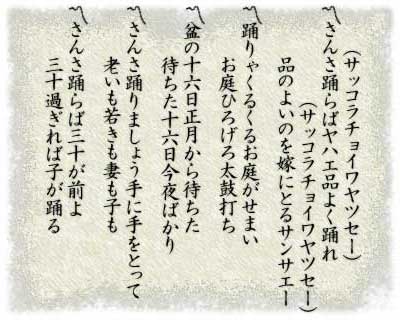 (サッコラチョイワヤツセー)
〽さんさ踊らばヤハエ品よく踊れ
(サッコラチョイワヤツセー)
品のよいのを嫁にとるサンサエー
〽踊りゃくるくるお庭がせまい
お庭ひろげろ太鼓打ち
〽盆の十六日正月から待ちた
待ちた十六日今夜ばかり
〽さんさ踊りましょう手に手をとって
老いも若きも妻も子も
〽さんさ踊らば三十が前よ
三十過ぎれば子が踊る